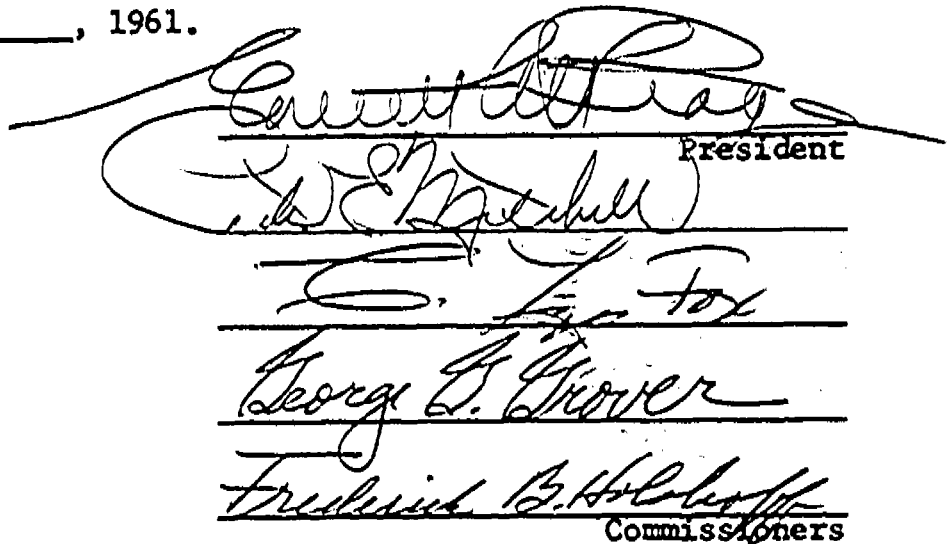 , 1961.
Everett
President
E. Mitchell
C. Lyn Fox
George G. Grover
Frederick B. Holoboff
Commissioners